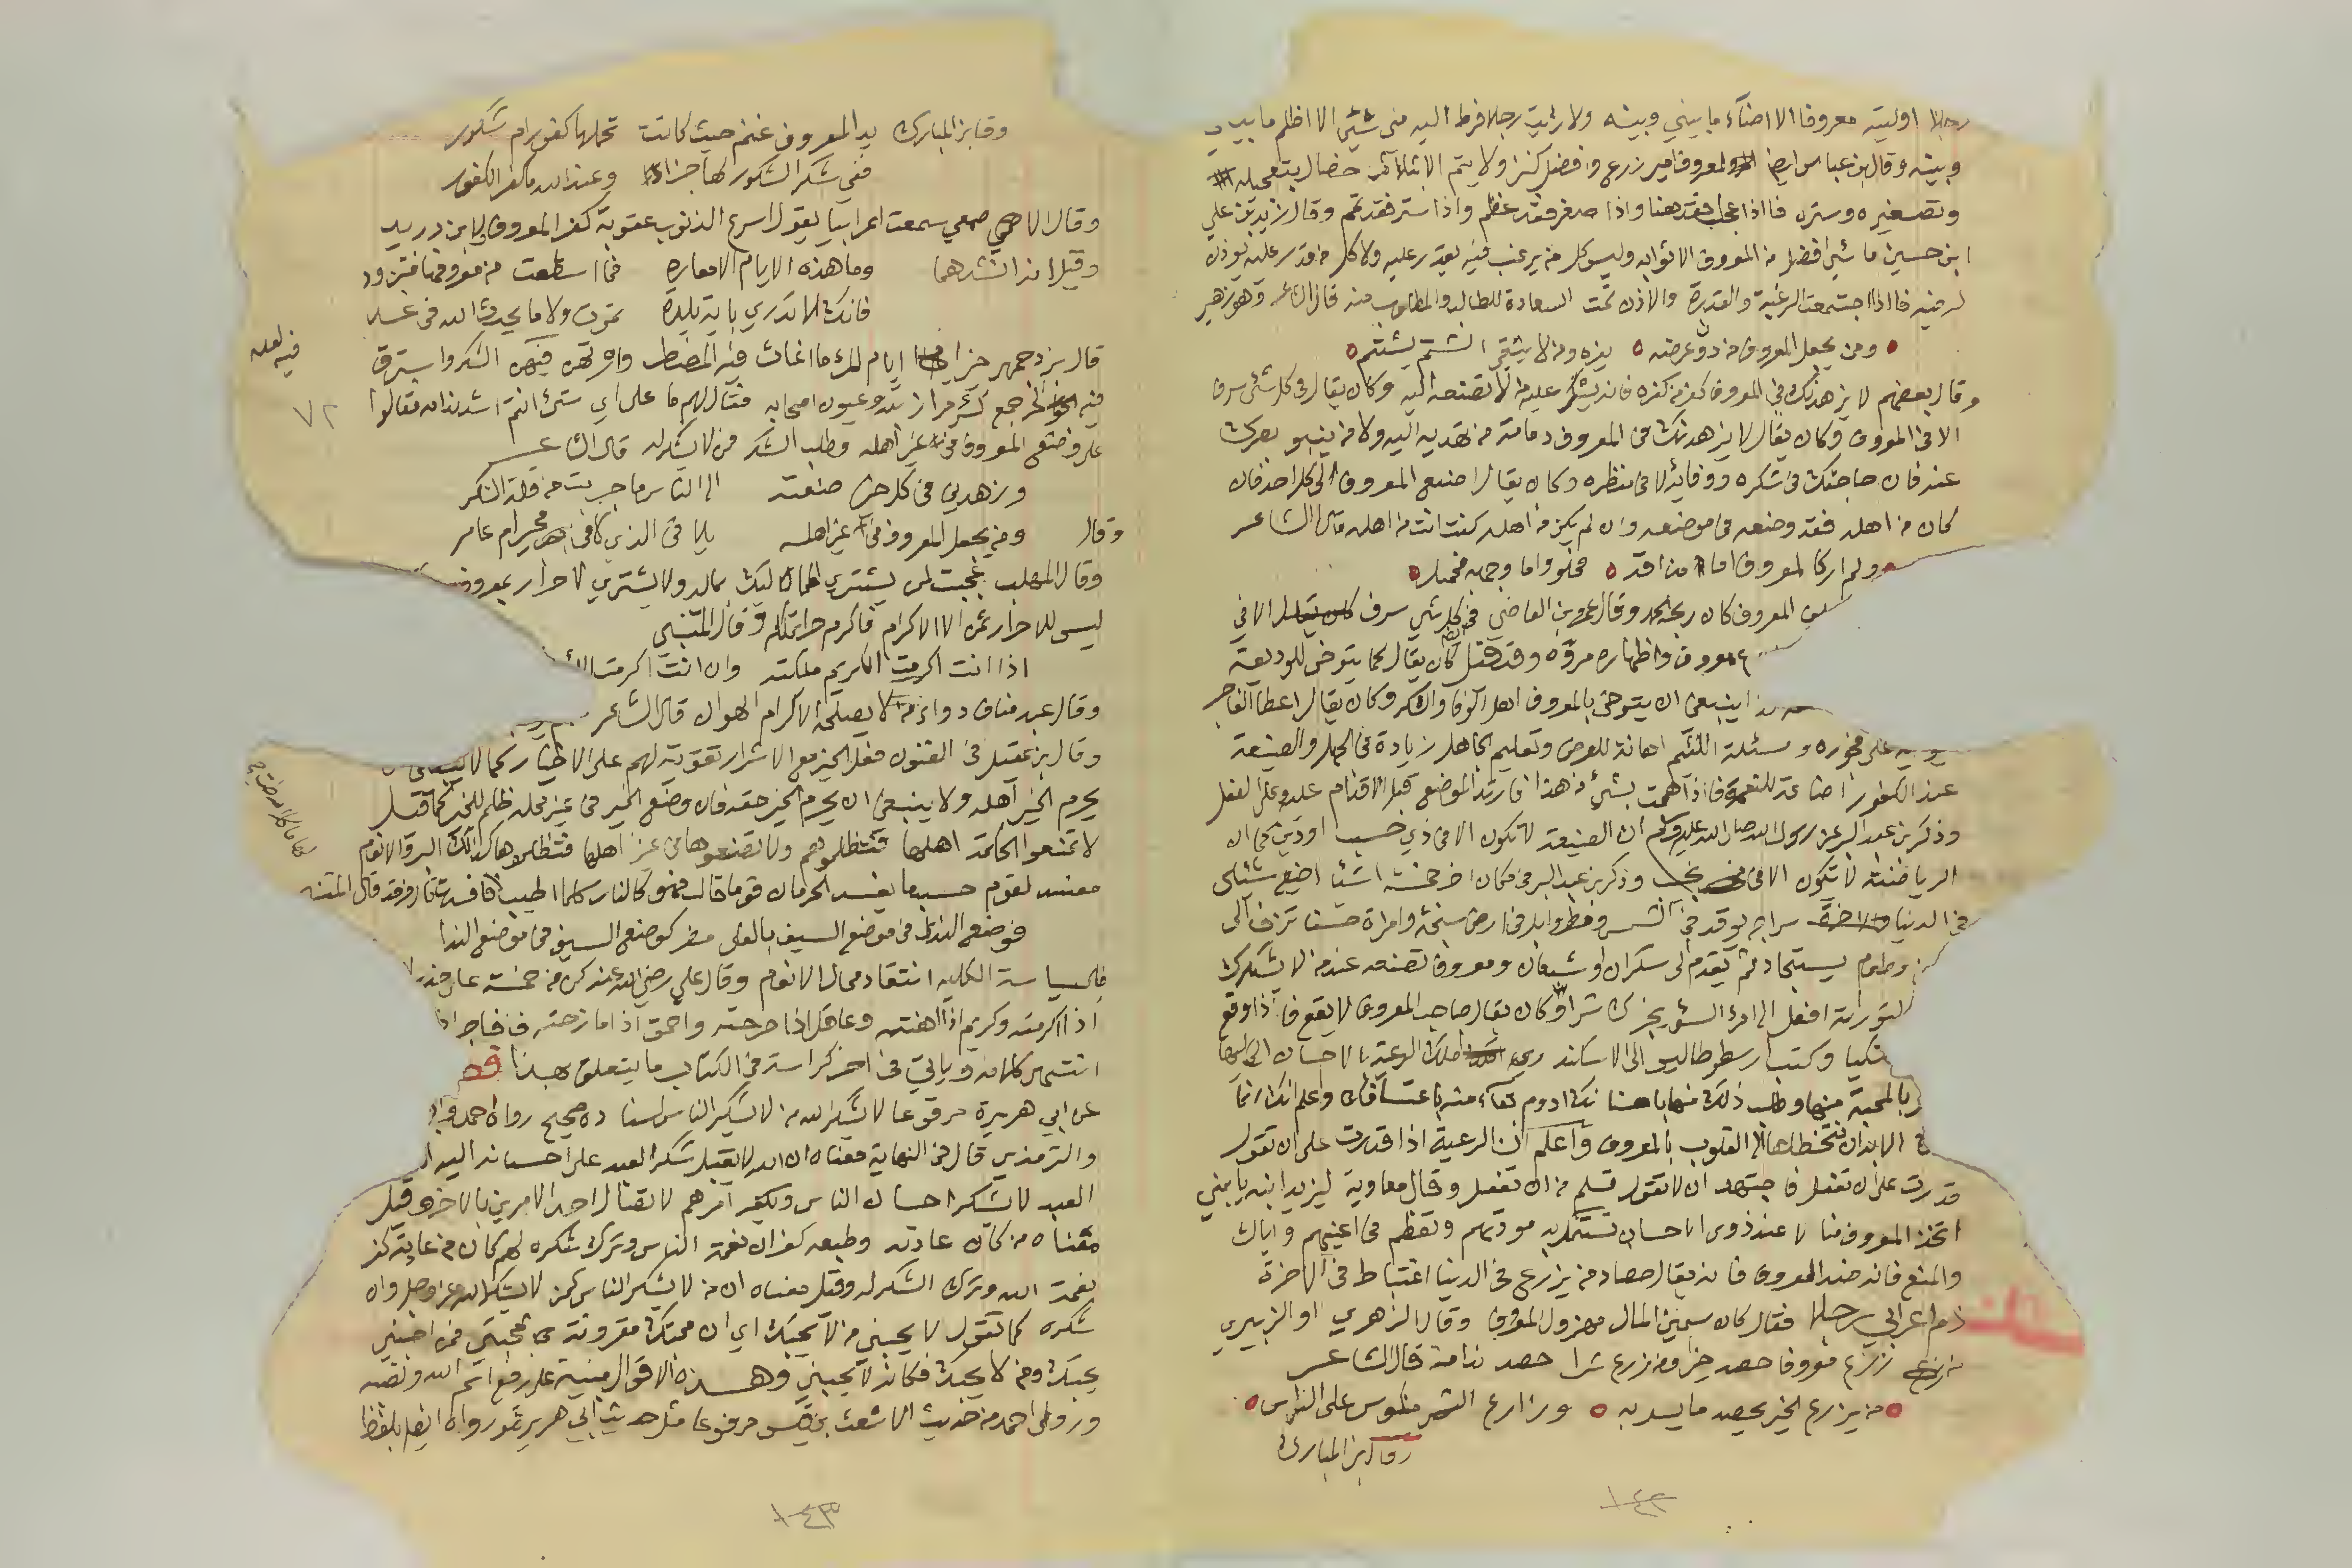 رجلا اوليته معروفا الا اضآء ما بيني وبينه ولا رئيت رجلا فرط اليه مني شئي الا اظلم ما بيني
وبينه وقال بن عباس ايضا المعروف امير زرع وافضل كنز ولا يتم الا بثلاث خصال بتعجيله
وتصغيره وستره فااذا عجل فقد هنا واذا صغر فقد عظم واذا ستر فقد تمم وقال زيد بن علي
ابن حسين ما شئي افضل من المعروف الا ثوابه وليس كل من يرغب فيه يقدر عليه ولا كل من قدر عليه يوذن
له فيه فااذا اجتمعت الرغبة والقدرة والاذن تمت السعادة للطالب والمطلوب منه قال الشاعر وهو زهير
ومن يجعل المعروف من دون عرضه يفره ومن لا يتقي الشتم يشتم
وقال بعضهم لا يزهدنك في المعروف كفر من كفره فانه يشكر عليه من لا تصنعه اليه وكان يقال في كل شئي سرف
الا في المعروف وكان يقال لا يزهدنك في المعروف دمامة من تهديه اليه ولا من ينبو بصرك
عنه فان حاجتك في شكره ووفائه لا في منظره وكان يقال اصنع المعروف الى كل احد فان
كان من اهله فقد وضعته في موضعه وان لم يكن من اهله كنت انت من اهله قال الشاعر
ولم ار كالمعروف اما مذاقه فحلو واما وجهه فجميل
المعروف كان ربحه الحمد وقال عمرو بن العاص في كل شئي سرف الا في
معروف واظهاره مروه وقد قيل كان يقال كما يتوخى للوديعة
ينبغي ان يتوخى بالمعروف اهل الوفا والشكر وكان يقال اعطا الفاجر
على فجوره ومسئلة اللئيم اهانة للعرض وتعليم الجاهل زيادة في الجهل والصنيعة
عند الكفور اضاعة للنعمة فااذا هممت بشئ من هذا فارتد الموضع قبل الاقدام عليه وعلى الفعل
وذكر بن عبد البر عن رسول الله صلى الله عليه وسلم ان الصنيعة لا تكون الا في ذي حسب او دين كما ان
الرياضة لا تكون الا في نجيب وذكر بن عبد البر في مكان اخر خمسة اشيا اضيع شئي
في الدنيا سراج يوقد في الشمس ومطر وابل في ارض سبخة وامراة حسنا تزف الى
وطعام يستجاد ثم يقدم الى سكران او شبعان ومعروف تصنعه عند من لا يشكرك
التوراة افعل الى امرئ السوء يجزك شرا وكان يقال صاحب المعروف لا يقع فااذا وقع
متكيا وكتب ارسطوطاليس الى الاسكندر املك الرعية بالاحسان اليها
بالمحبة منها وطلب ذلك منها باحسانك ادوم بقاء منه باعتسافك واعلم انك انما
الابدان فتخطاها الى القلوب بالمعروف واعلم ان الرعية اذا قدرت على ان تقول
قدرت على ان تفعل فاجتهد ان لا تقول تسلم من ان تفعل وقال معاوية ليزيد ابنه يا بني
اتخذ المعروف منا لا عند ذوي الاحسان تستميل به مودتهم وتعظم في اعينهم واياك
والمنع فانه ضد المعروف فانه يقال حصاد من يزرع في الدنيا اغتباط في الاخرة
ذم اعرابي رجلا فقال كان سمين المال مهزول المعروف وقال الزهري او الزبيري
من زرع معروفا حصد خيرا ومن زرع شرا حصد ندامة قال الشاعر
من يزرع الخير يحصد ما يسر به وزارع الشر منكوس على الراس
وقال بن المبارك
١٤٢
وقال بن المبارك يد المعروف غنم حيث كانت تحملها كفور ام شكور
ففي شكر الشكور لها جزاء وعند الله ما كفر الكفور
وقال الاصمعي سمعت اعرابيا يقول اسرع الذنوب عقوبة كفر المعروف لابن دريد
وقيل انه انشدهما وما هذه الايام الا معارة فما اسطعت من معروفها فتزود
فانك لا تدري باية بلدة تموت ولا ما يحدث الله في غد
قال بزرجمهر خير ايام المرء ما اغاث فيه المضطر وارتهن فيه الشكر واسترق
فيه الحر جمع كسرى مرازبته وعيون اصحابه فقال لهم ما على اي شئ انتم اشد ندامة قالوا
على وضع المعروف في غير اهله وطلب الشكر ممن لا شكر له قال الشاعر
وزهدني في كل خير صنعته الى الناس ما جربت من قلة الشكر
وقال ومن يجعل المعروف في غير اهله يلاقي الذي لاقى مجير ام عامر
وقال المهلب عجبت لمن يشتري المماليك بماله ولا يشتري الاحرار بمعروفه
ليس للاحرار ثمن الا الاكرام فاكرم حرا تملكه وقال المتنبي
اذا انت اكرمت الكريم ملكته وان انت اكرمت
وقال عبد مناف دواء من لا يصلحه الاكرام الهوان قال الشاعر
وقال بن عقيل في الفنون فعل الخير مع الاشرار تقوية لهم على الاخيار كما لا ينبغي ان
يحرم الخير اهله ولا ينبغي ان يحرم الخير حقه فان وضع الخير في غير محله ظلم للخير كما قيل
لا تمنعوا الحكمة اهلها فتظلموهم ولا تضعوها في غير اهلها فتظلموها كذلك البر والانعام
مفسد لقوم حسب ما يفسد الحرمان قوما قال فهو كالنار كلما قال المتنبي
فوضع الندى في موضع السيف بالعلى مضر كوضع السيف في موضع الندا
السياسة الكلية انتقاد محال الانعام وقال علي رضي الله عنه كن من خمسة على حذر
اذا اكرمته وكريم اذا اهنته وعاقل اذا احرجته واحمق اذا مازحته وفاجر اذا
انتهى كلامه وياتي في اخر كراسة في الكتاب ما يتعلق بهذا فصل
عن ابي هريرة مرفوعا لا يشكر الله من لا يشكر الناس اسناده صحيح رواه احمد
والترمذي قال في النهاية معناه ان الله لا يقبل شكر العبد على احسانه اليه
العبد لا يشكر احسان الناس ويكفر امرهم لاتصال احد الامرين بالاخر وقيل
معناه من كان عادته وطبعه كفران نعمة الناس وترك شكره لهم كان من عادته كفر
نعمة الله وترك الشكر له وقيل معناه ان من لا يشكر الناس كمن لا يشكر الله عز وجل وان
شكره كما تقول لا يحبني من لا يحبك اي ان محبتك مقرونة بمحبتي فمن احبني
يحبك ومن لا يحبك فكانه لا يحبني وهذه الاقوال مبنية على رفع اسم الله ونصبه
وروى احمد من حديث الاشعث بن قيس مرفوعا مثل حديث ابي هريرة ورواه ايضا بلفظ
فيه لعله
٧٢
١٤٣